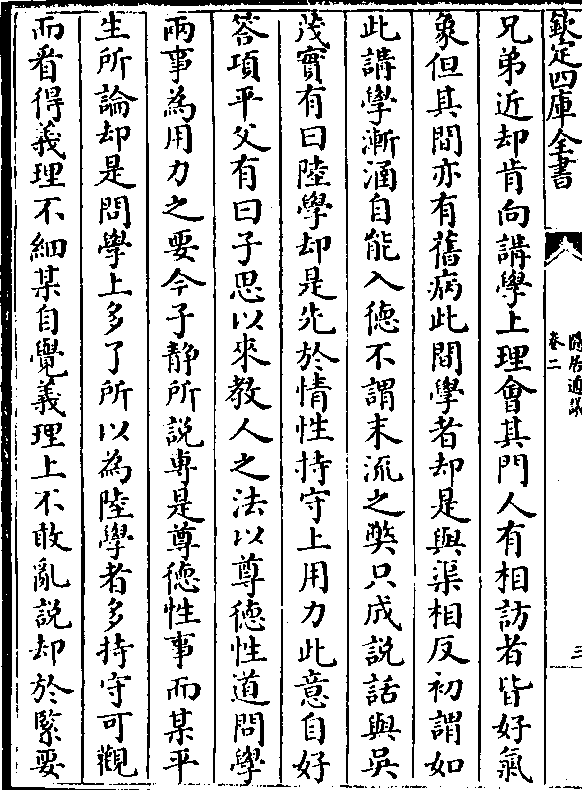 欽定四庫全書
隱居通議
卷二
三
兄弟近却肯向講學上理會其門人有相訪者皆好氣
象但其間亦有舊病此間學者却是與渠相反初謂如
此講學漸涵自能入德不謂末流之弊只成說話與吳
茂實有曰陸學却是先於情性持守上用力此意自好
答項平父有曰子思以來教人之法以尊德性道問學
兩事為用力之要今子静所說専是尊德性事而某平
生所論却是問學上多了所以為陸學者多持守可觀
而看得義理不細某自覺義理上不敢亂說却於緊要